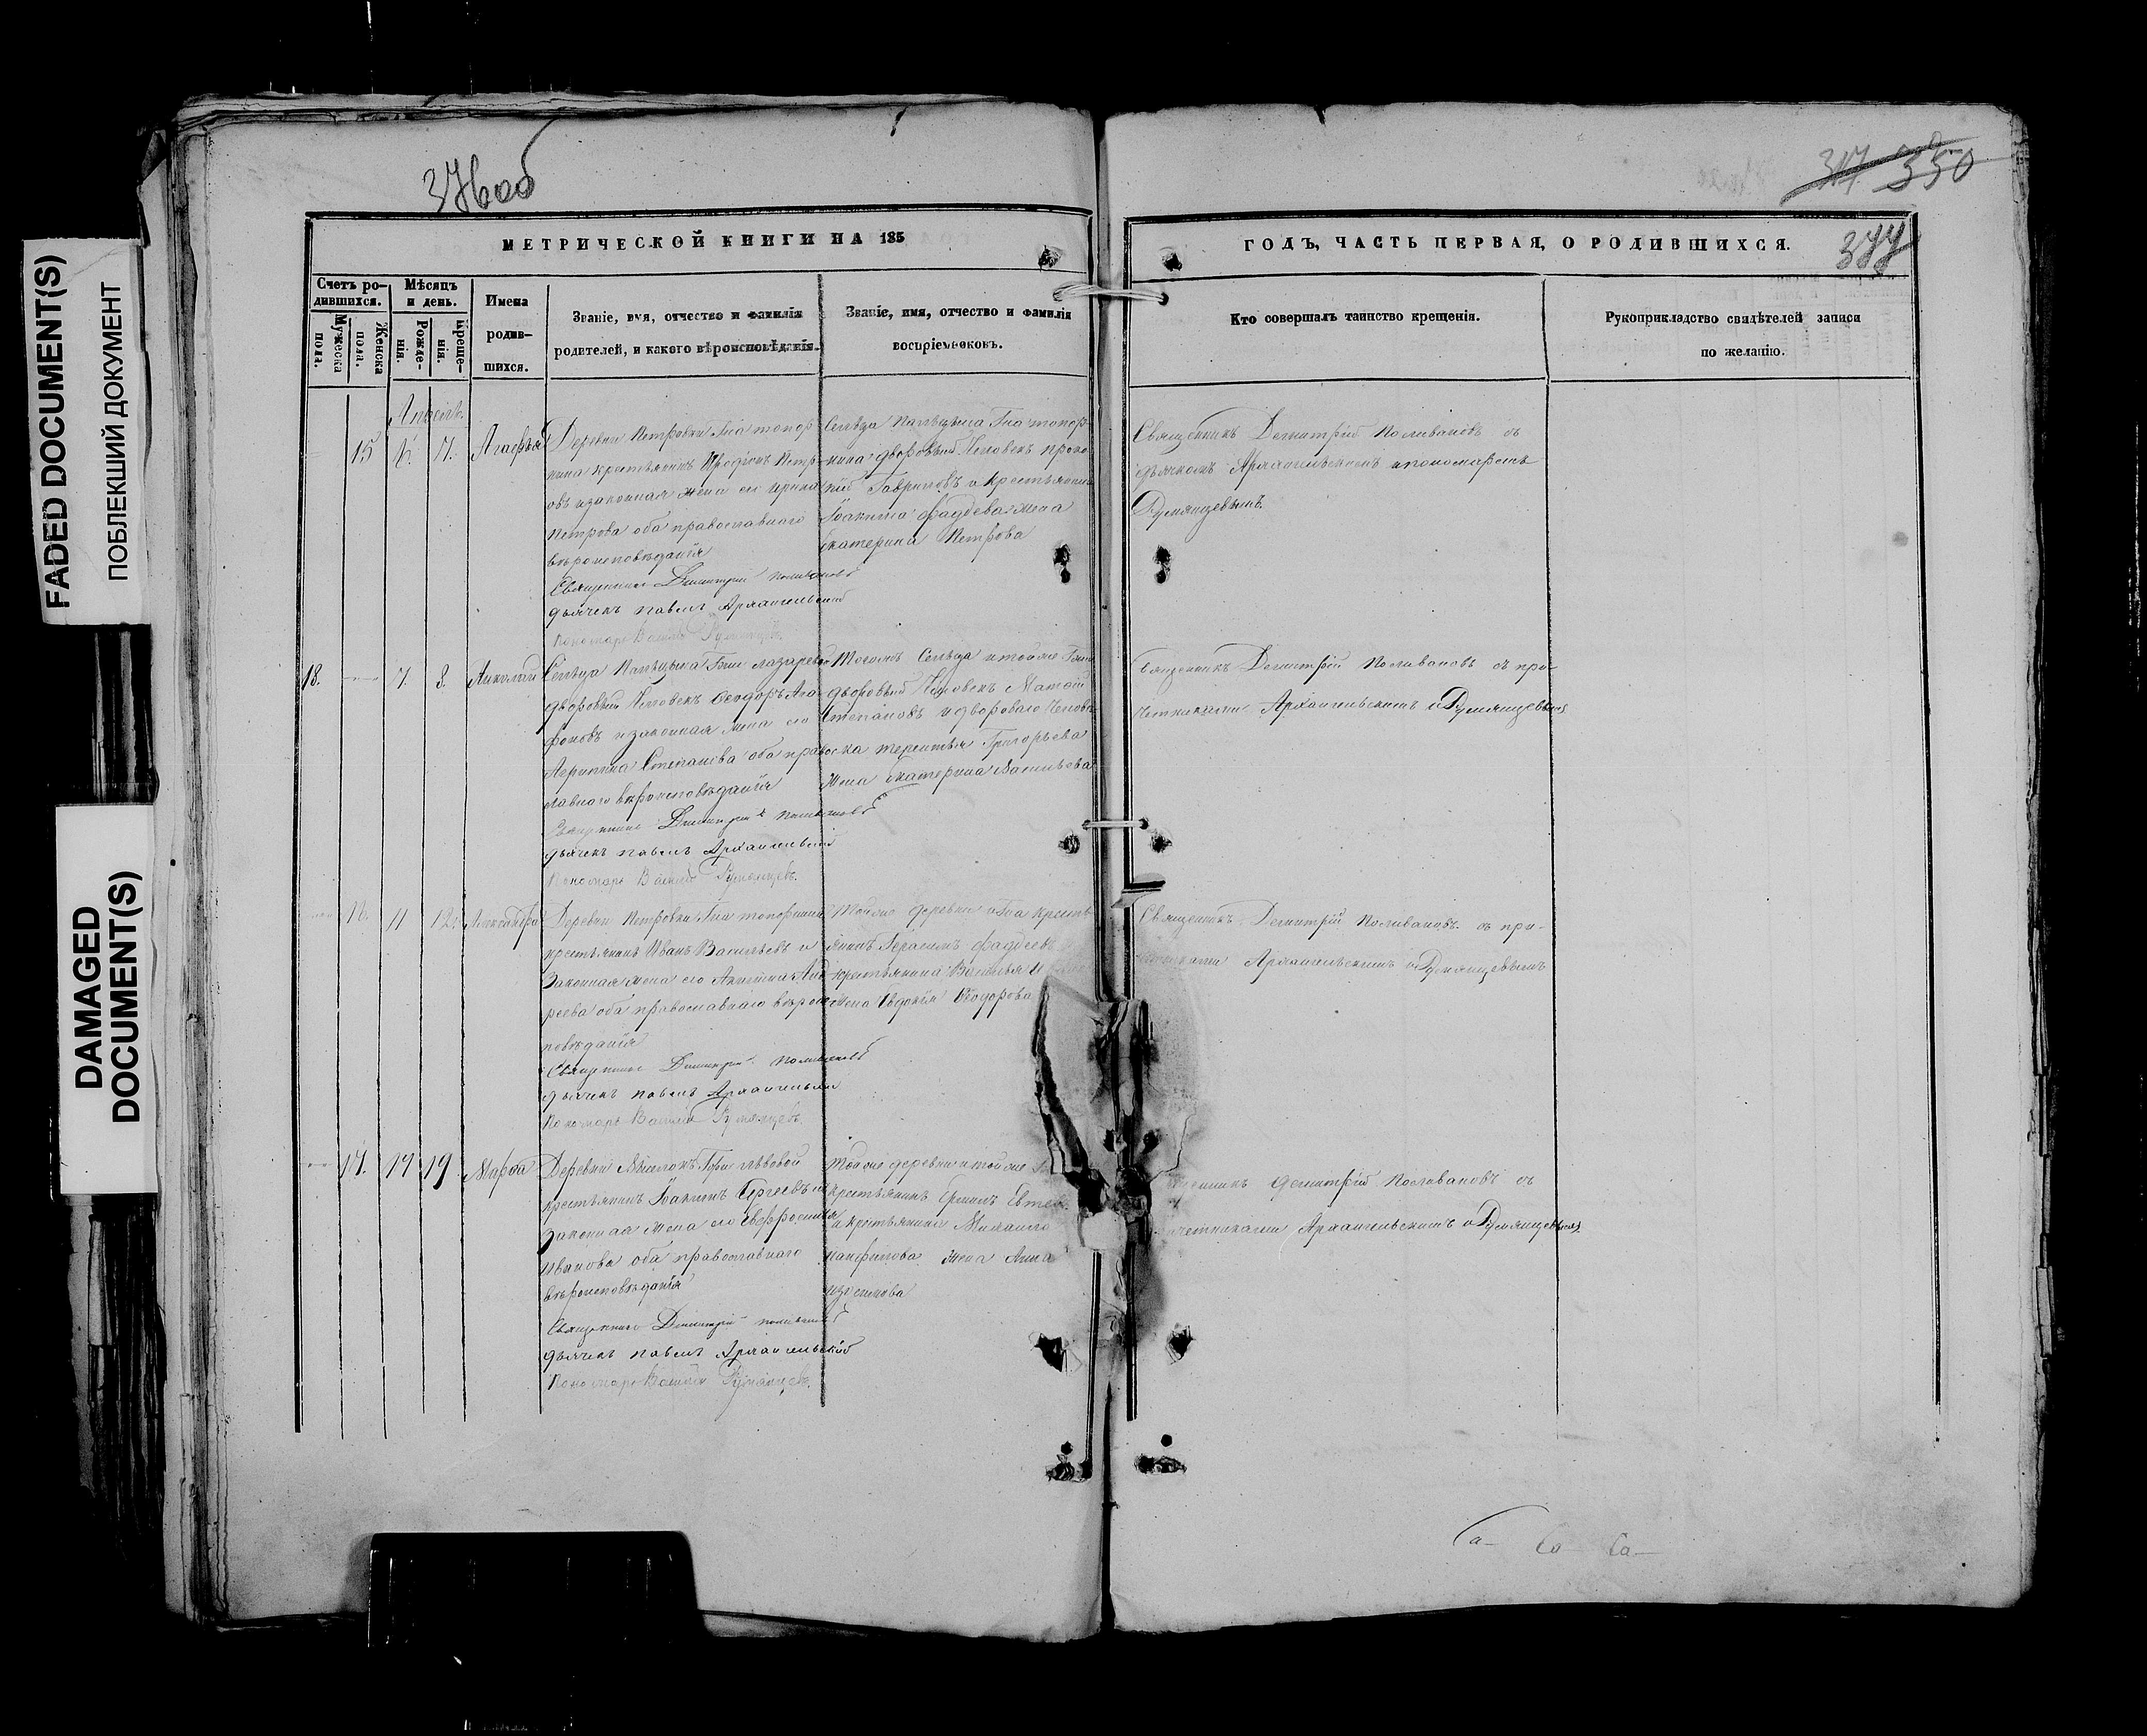 FADED DOCUMENT(S)
ПОБЛЕКШИЙ ДОКУМЕНТ
DAMAGED
DOCUMENT(S)
376 об
317 350
377
МЕТРИЧЕСКОЙ КНИГИ НА 185
Счетъ ро-
дившихся.
Мужеска
пола.
Женска
пола.
Мѣсяцъ
и день.
Рожде-
нія.
Креще-
нія.
Имена
родив-
шихся.
Званіе, имя, отчество и фамилія
родителей, и какого вѣроисповѣданія.
Званіе, имя, отчество и фамилія
воспріемниковъ.
ГОДЪ, ЧАСТЬ ПЕРВАЯ, О РОДИВШИХСЯ.
Кто совершалъ таинство крещенія.
Рукоприкладство свидѣтелей записи
по желанію.
Апрель.
15 6. 7. Агафья
Деревни Петровки Гна топор
кина крестьянинъ Ирофеъ Петр-
овъ и законная жена его Ирина
Петрова оба православнаго
вѣроисповѣданія
Священникъ Димитрій Поливановъ
дьячекъ Павелъ Архангельскій
Пономарь Василій Румянцевъ.
Сельца Пальцына Гна топор-
кина дворовый Человекъ Проко-
пій Гавриловъ и крестьянина
Іоакима Фаддева жена
Екатерина Петрова
Священникъ Демитрій Поливановъ съ
дьячкомъ Архангельскимъ и пономаремъ
Румянцевымъ.
18. 7. 8. Николай
Сельца Пальцына Гжи лазаревой
дворовый Человекъ Феодоръ Ага-
фоновъ и законная жена его
Агрипина Степанова оба правос-
лавного вѣроисповѣданія
Священникъ Димитрій Поливановъ
дьячекъ Павелъ Архангельскій
Пономарь Василій Румянцевъ.
Тогожъ Сельца и тойже Гжи
дворовый Человекъ Матвей
Степановъ и двороваго Челове-
ка терентья Григорьева
Жена Екатерина Васильева
Священникъ Демитрій Поливановъ съ при-
четниками Архангельскимъ и Румянцевымъ
16. 11 12. Александра
Деревни Петровки Гна топоркина
крестьянинъ Иванъ Васильевъ и
Законная жена его Акилина Анд
реева оба православнаго вѣроис
повѣданія
Священникъ Димитрій Поливановъ
дьячекъ Павелъ Архангельскій
Пономарь Василій Румянцевъ.
Тойже деревни и Гна кресть
янинъ Герасимъ Фаддеевъ
крестьянина Василья
жена Евдокія Феодорова
Священникъ Демитрій Поливановъ съ при-
четниками Архангельскимъ и Румянцевымъ
17. 17 19 Марфа
Деревни Гжи львовой
крестьянинъ Іоакимъ Сергеевъ и
законная жена его Евфросинья
Иванова оба православнаго
вѣроисповѣданія
Священникъ Димитрій Поливановъ
дьячекъ Павелъ Архангельскій
Пономарь Василій Румянцевъ.
Тойже деревни и тойже
крестьянинъ
и крестьянина Михаила
панфилова жена Анна
изосимова
Демитрій Поливановъ съ
четниками Архангельскимъ и Румянцевымъ